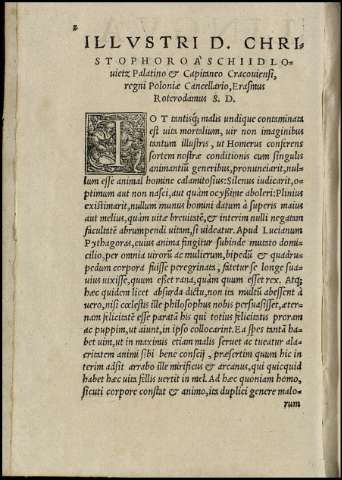 2
ILLVSTRI D. CHRI-
STOPHORO A' SCHIIDLO-
uietz Palatino & Capitaneo Cracouiensi,
regni Poloniæ Cancellario, Erasmus
Roterodamus S. D.
TOT tantisq; malis undique contaminata
est uita mortalium, uir non imaginibus
tantum illustris, ut Homerus conferens
sortem nostræ conditionis cum singulis
animantiũ generibus, pronunciarit, nul-
lum esse animal homine calamitosius: Silenus iudicarit, o-
ptimum aut non nasci, aut quàm ocyßime aboleri: Plinius
existimarit, nullum munus homini datum à superis maius
aut melius, quàm uitæ breuitatẽ, & interim nulli negatam
facultatẽ abrumpendi uitam, si uideatur. Apud Lucianum
Pythagoras, cuius anima fingitur subinde mutato domi-
cilio, per omnia uirorũ ac mulierum, bipedũ & quadru-
pedum corpora fuisse peregrinata, fatetur se longe sua-
uius uixisse, quum esset rana, quàm quum esset rex. Atq;
hæc quidem licet absurda dictu, non ita multũ abessent à
uero, nisi cælestis ille philosophus nobis persuasisset, æter-
nam felicitatẽ esse paratã his qui totius felicitatis proram
ac puppim, ut aiunt, in ipso collocarint. Ea spes tantũ ha-
bet uim, ut in maximis etiam malis seruet ac tueatur ala-
critatem animi sibi bene conscij, præsertim quum hic in
terim adsit arrabo ille mirificus & arcanus, qui quicquid
habet hæc uita fellis uertit in mel. Ad hæc quoniam homo,
sicuti corpore constat & animo, ita duplici genere malo-
rum